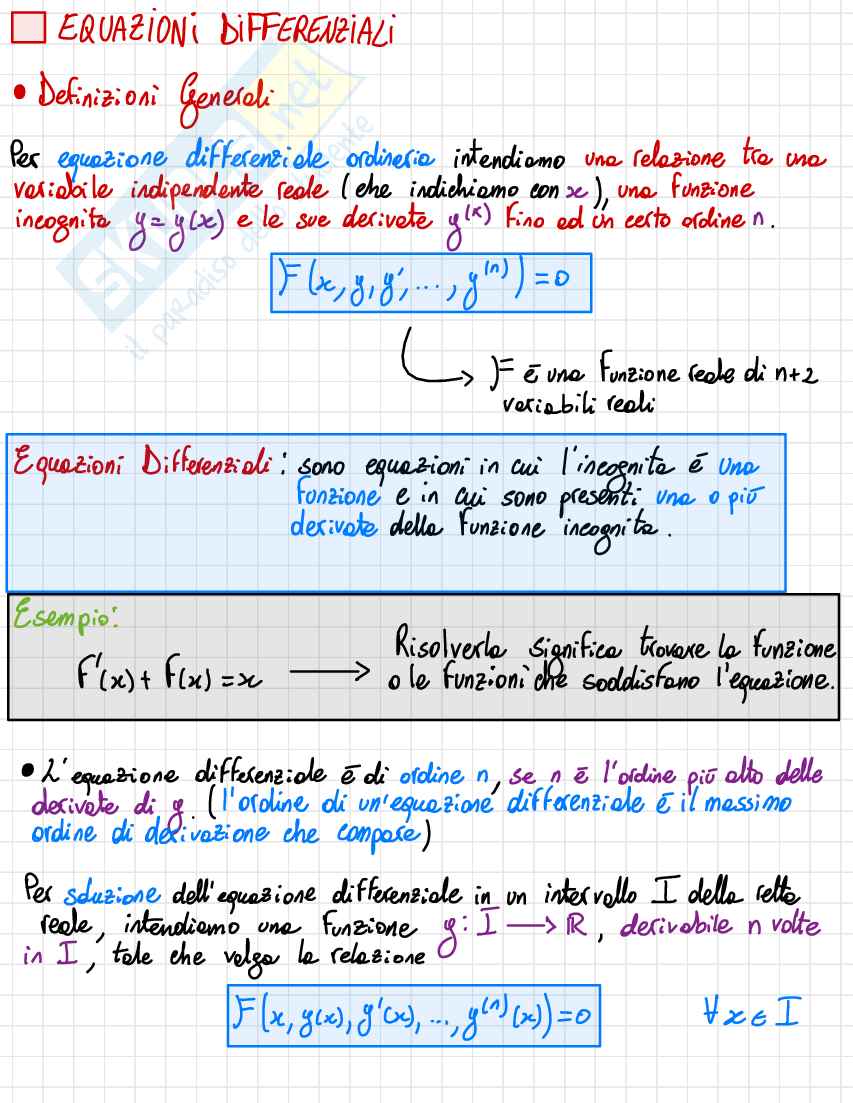 EQUAZIONI DIFFERENZIALI
• Definizioni Generali
Per equazione differenziale ordinaria intendiamo una relazione tra una
variabile indipendente reale (che indichiamo con x), una funzione
incognita y = y(x) e le sue derivate y^(k) fino ad un certo ordine n.
F(x, y, y', ..., y^(n)) = 0
F è una funzione reale di n+2
variabili reali
Equazioni Differenziali: sono equazioni in cui l'incognita è una
funzione e in cui sono presenti una o più
derivate della funzione incognita.
Esempio:
f'(x) + f(x) = x → Risolverla significa trovare la funzione
o le funzioni che soddisfano l'equazione.
• L'equazione differenziale è di ordine n, se n è l'ordine più alto delle
derivate di y. (l'ordine di un'equazione differenziale è il massimo
ordine di derivazione che compare)
Per soluzione dell'equazione differenziale in un intervallo I della retta
reale, intendiamo una funzione y: I → ℝ, derivabile n volte
in I, tale che valga la relazione
F(x, y(x), y'(x), ..., y^(n)(x)) = 0 ∀ x ∈ I
il paradiso dello studente